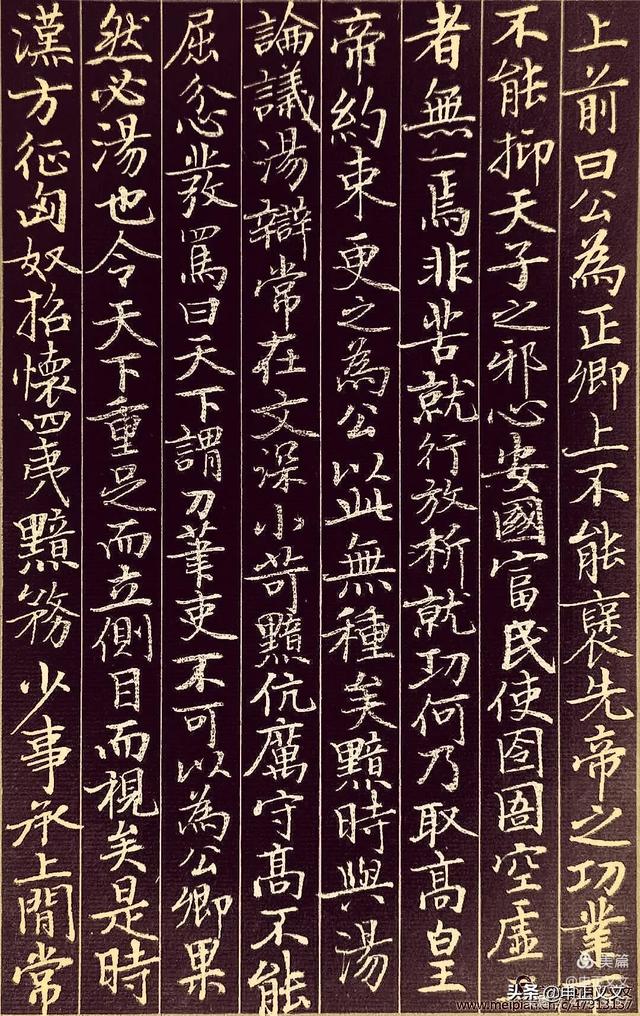 上前曰公為正卿上不能襃先帝之功業
不能抑天子之邪心安國富民使囹圄空虛
者無一焉非苦就行放析就功何乃取高皇
帝約束更之為公以此無種矣黯時與湯
論議湯辯常在文深小苛黯伉厲守高不能
屈忿發罵曰天下謂刀筆吏不可以為公卿果
然必湯也令天下重足而立側目而視矣是時
漢方征匈奴招懷四夷黯務少事承上閒常
美篇
头条 @中正文文